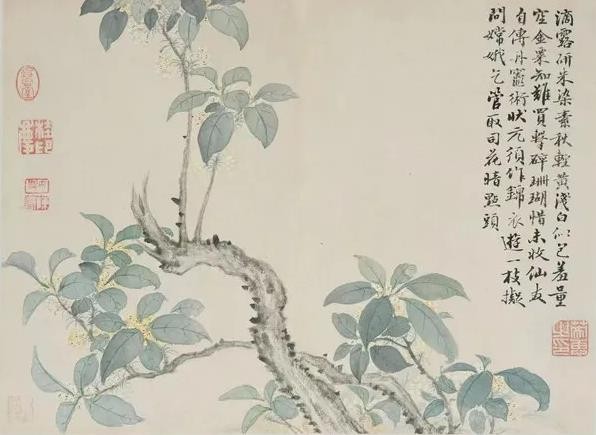 滴露研朱染素秋輕黃淺白似包羞量
空金粟知難買擊碎珊瑚惜未收仙友
自傳丹竈術狀元須作錦衣遊一枝擬
問嫦娥乞管取司花暗點頭